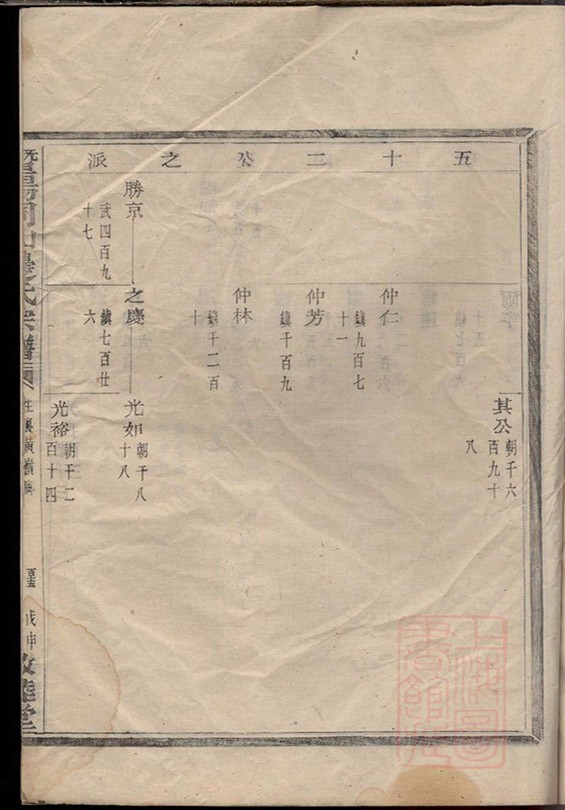 五十二公之派
其公
朝千六
百九十
八
仲仁
鎮九百七
十一
仲芳
鎮千百九
仲林
鎮千二百
十
勝京
武四百九
十七
之慶
鎮七百廿
六
光如
朝千八
十八
光裕
朝千二
百十四
戊申
敦睦堂